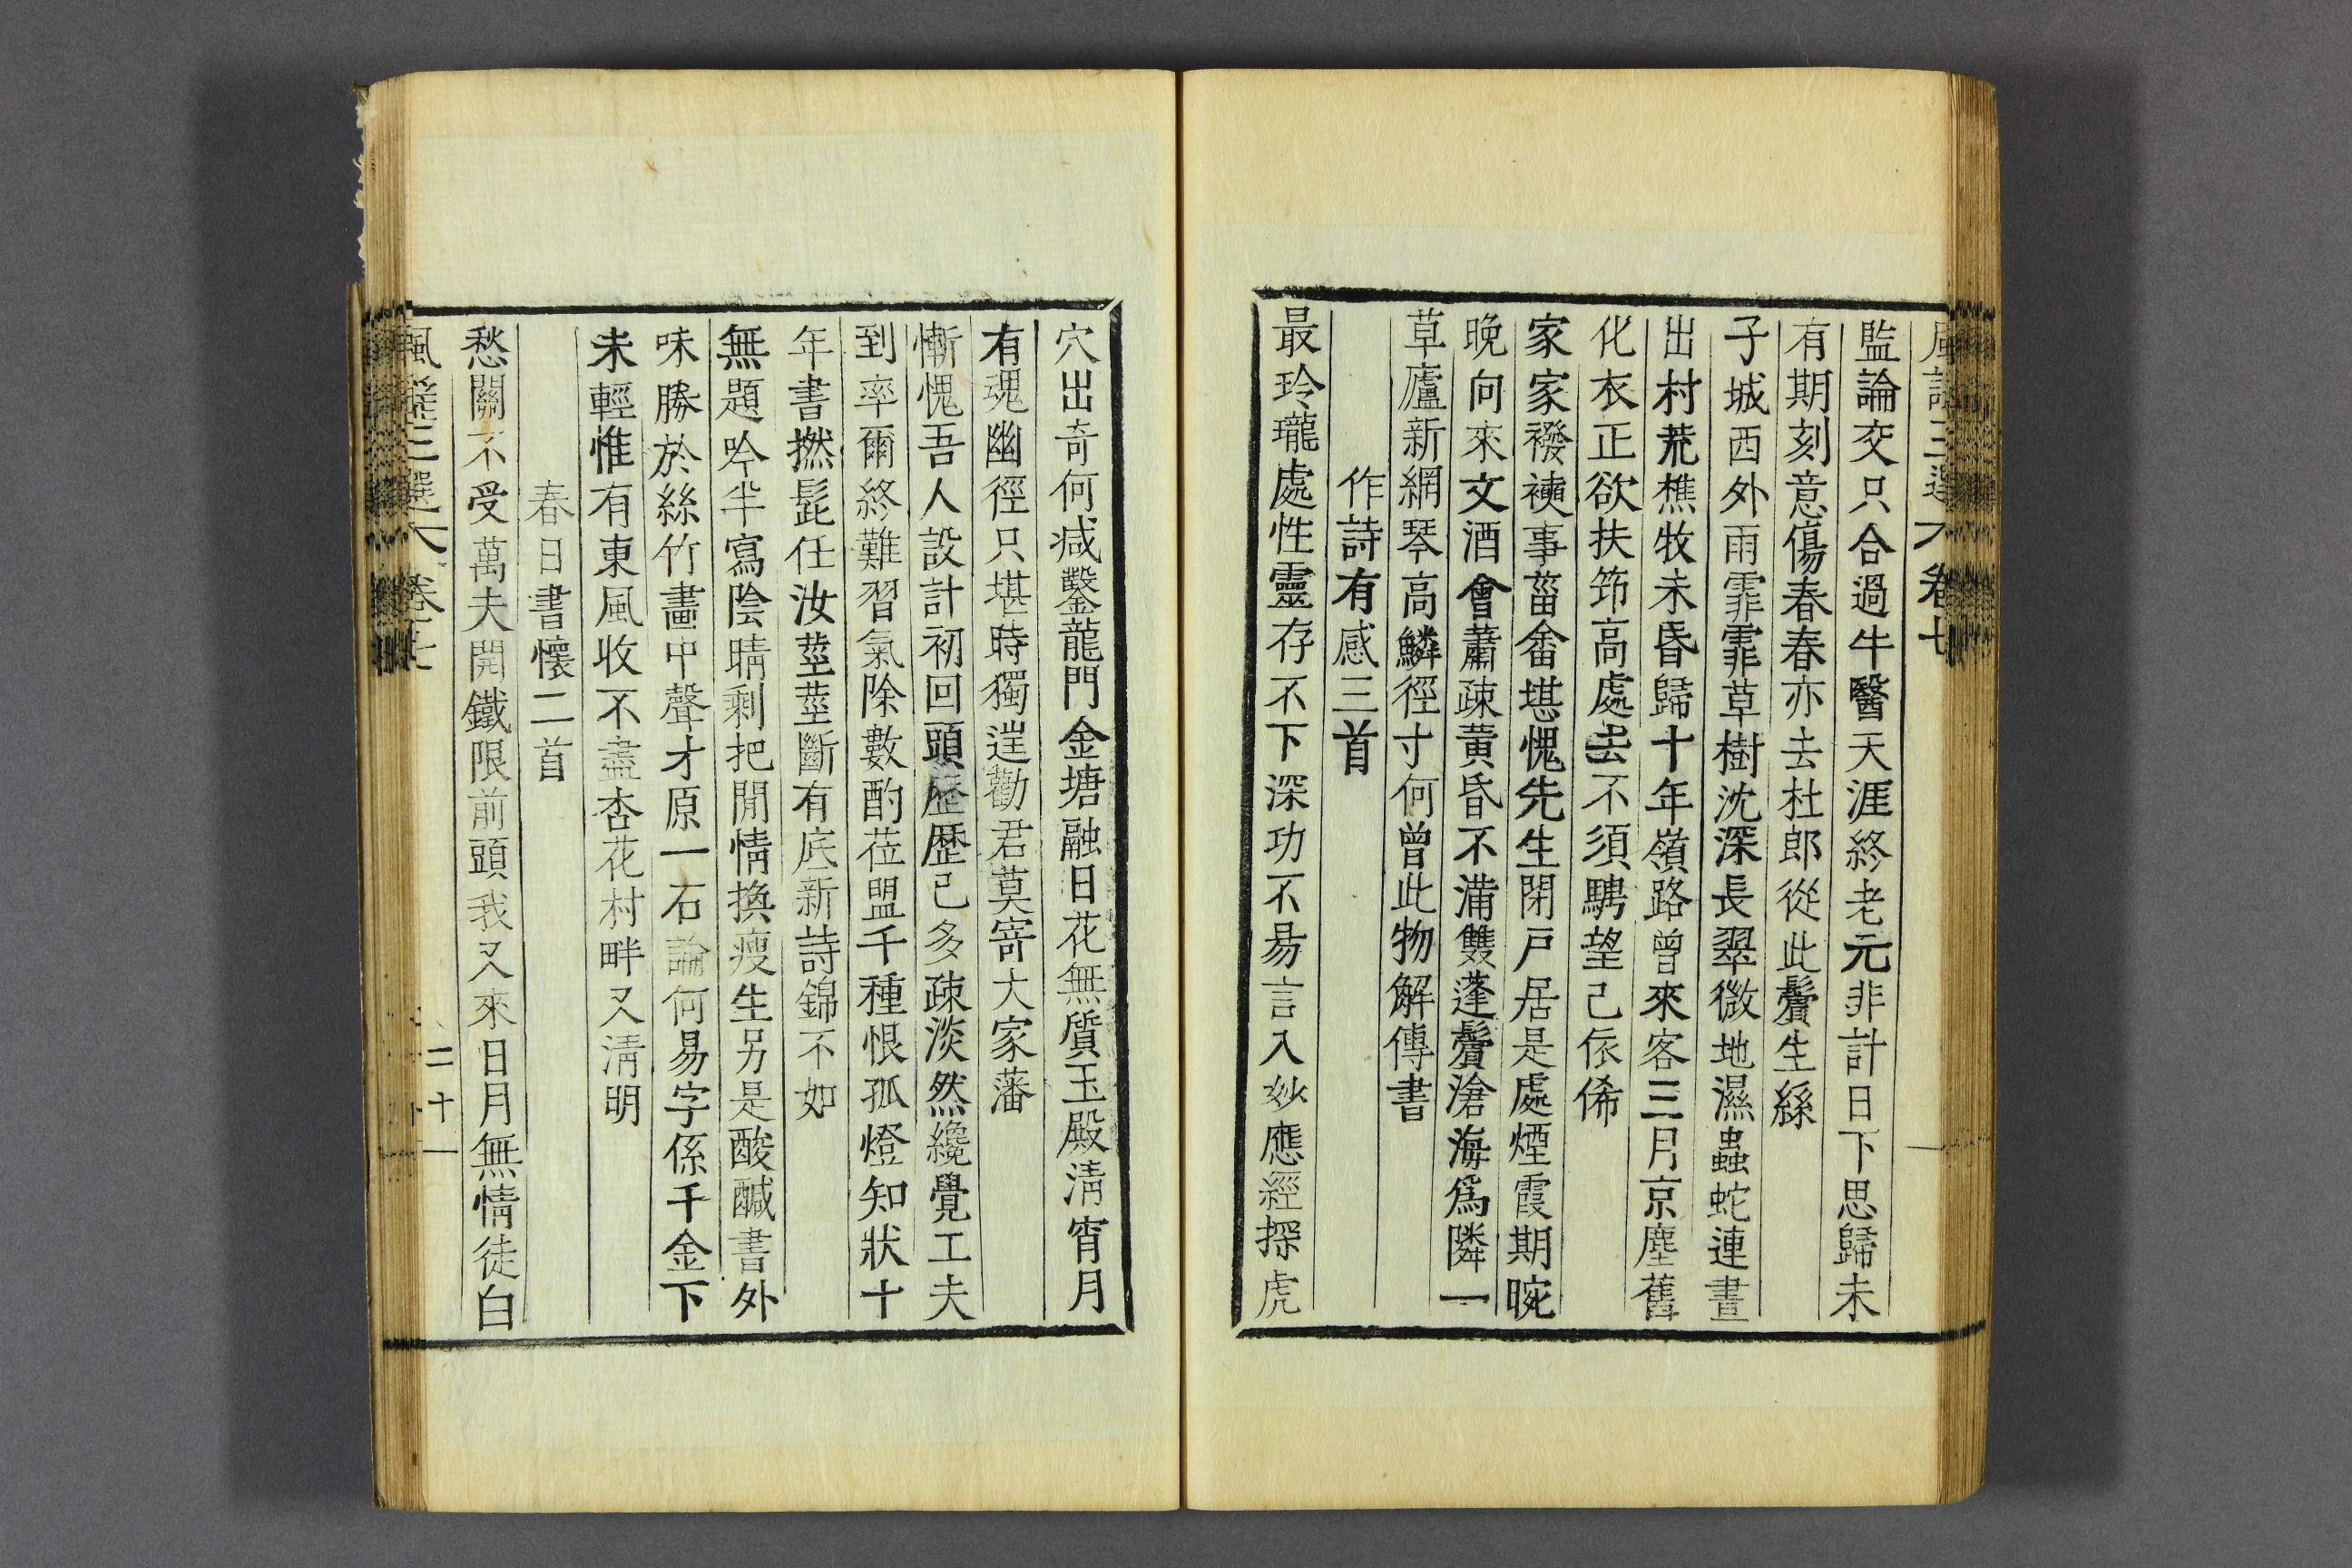 風謠三選 卷七
監論交只合過牛醫天涯終老元非計日下思歸未
有期刻意傷春春亦去杜郎從此鬢生絲
子城西外雨霏霏草樹沈深長翠微地濕蟲蛇連晝
出村荒樵牧未昏歸十年嶺路曾來客三月京塵舊
化衣正欲扶筇高處去不須騁望已依俙
家家襏襫事菑畬堪愧先生閉戸居是處煙霞期晼
晚向來文酒會蕭疎黃昏不滿雙蓬鬢滄海爲隣一
草廬新網琴高鱗徑寸何曾此物解傳書
作詩有感三首
最玲瓏處性靈存不下深功不易言入妙應經探虎
穴出奇何減鑿龍門金塘融日花無質玉殿淸宵月
有魂幽徑只堪時獨逞勸君莫寄大家藩
慚愧吾人設計初回頭歷歷已多疎淡然纔覺工夫
到率爾終難習氣除數酌莅盟千種恨孤燈知狀十
年書撚髭任汝莖莖斷有底新詩錦不如
無題吟半寫陰晴剩把閒情換瘦生另是酸醎書外
味勝於絲竹畵中聲才原一石論何易字係千金下
未輕惟有東風收不盡杏花村畔又淸明
春日書懷二首
愁關不受萬夫開鐵限前頭我又來日月無情徒白
風謠三選 卷七 二十一